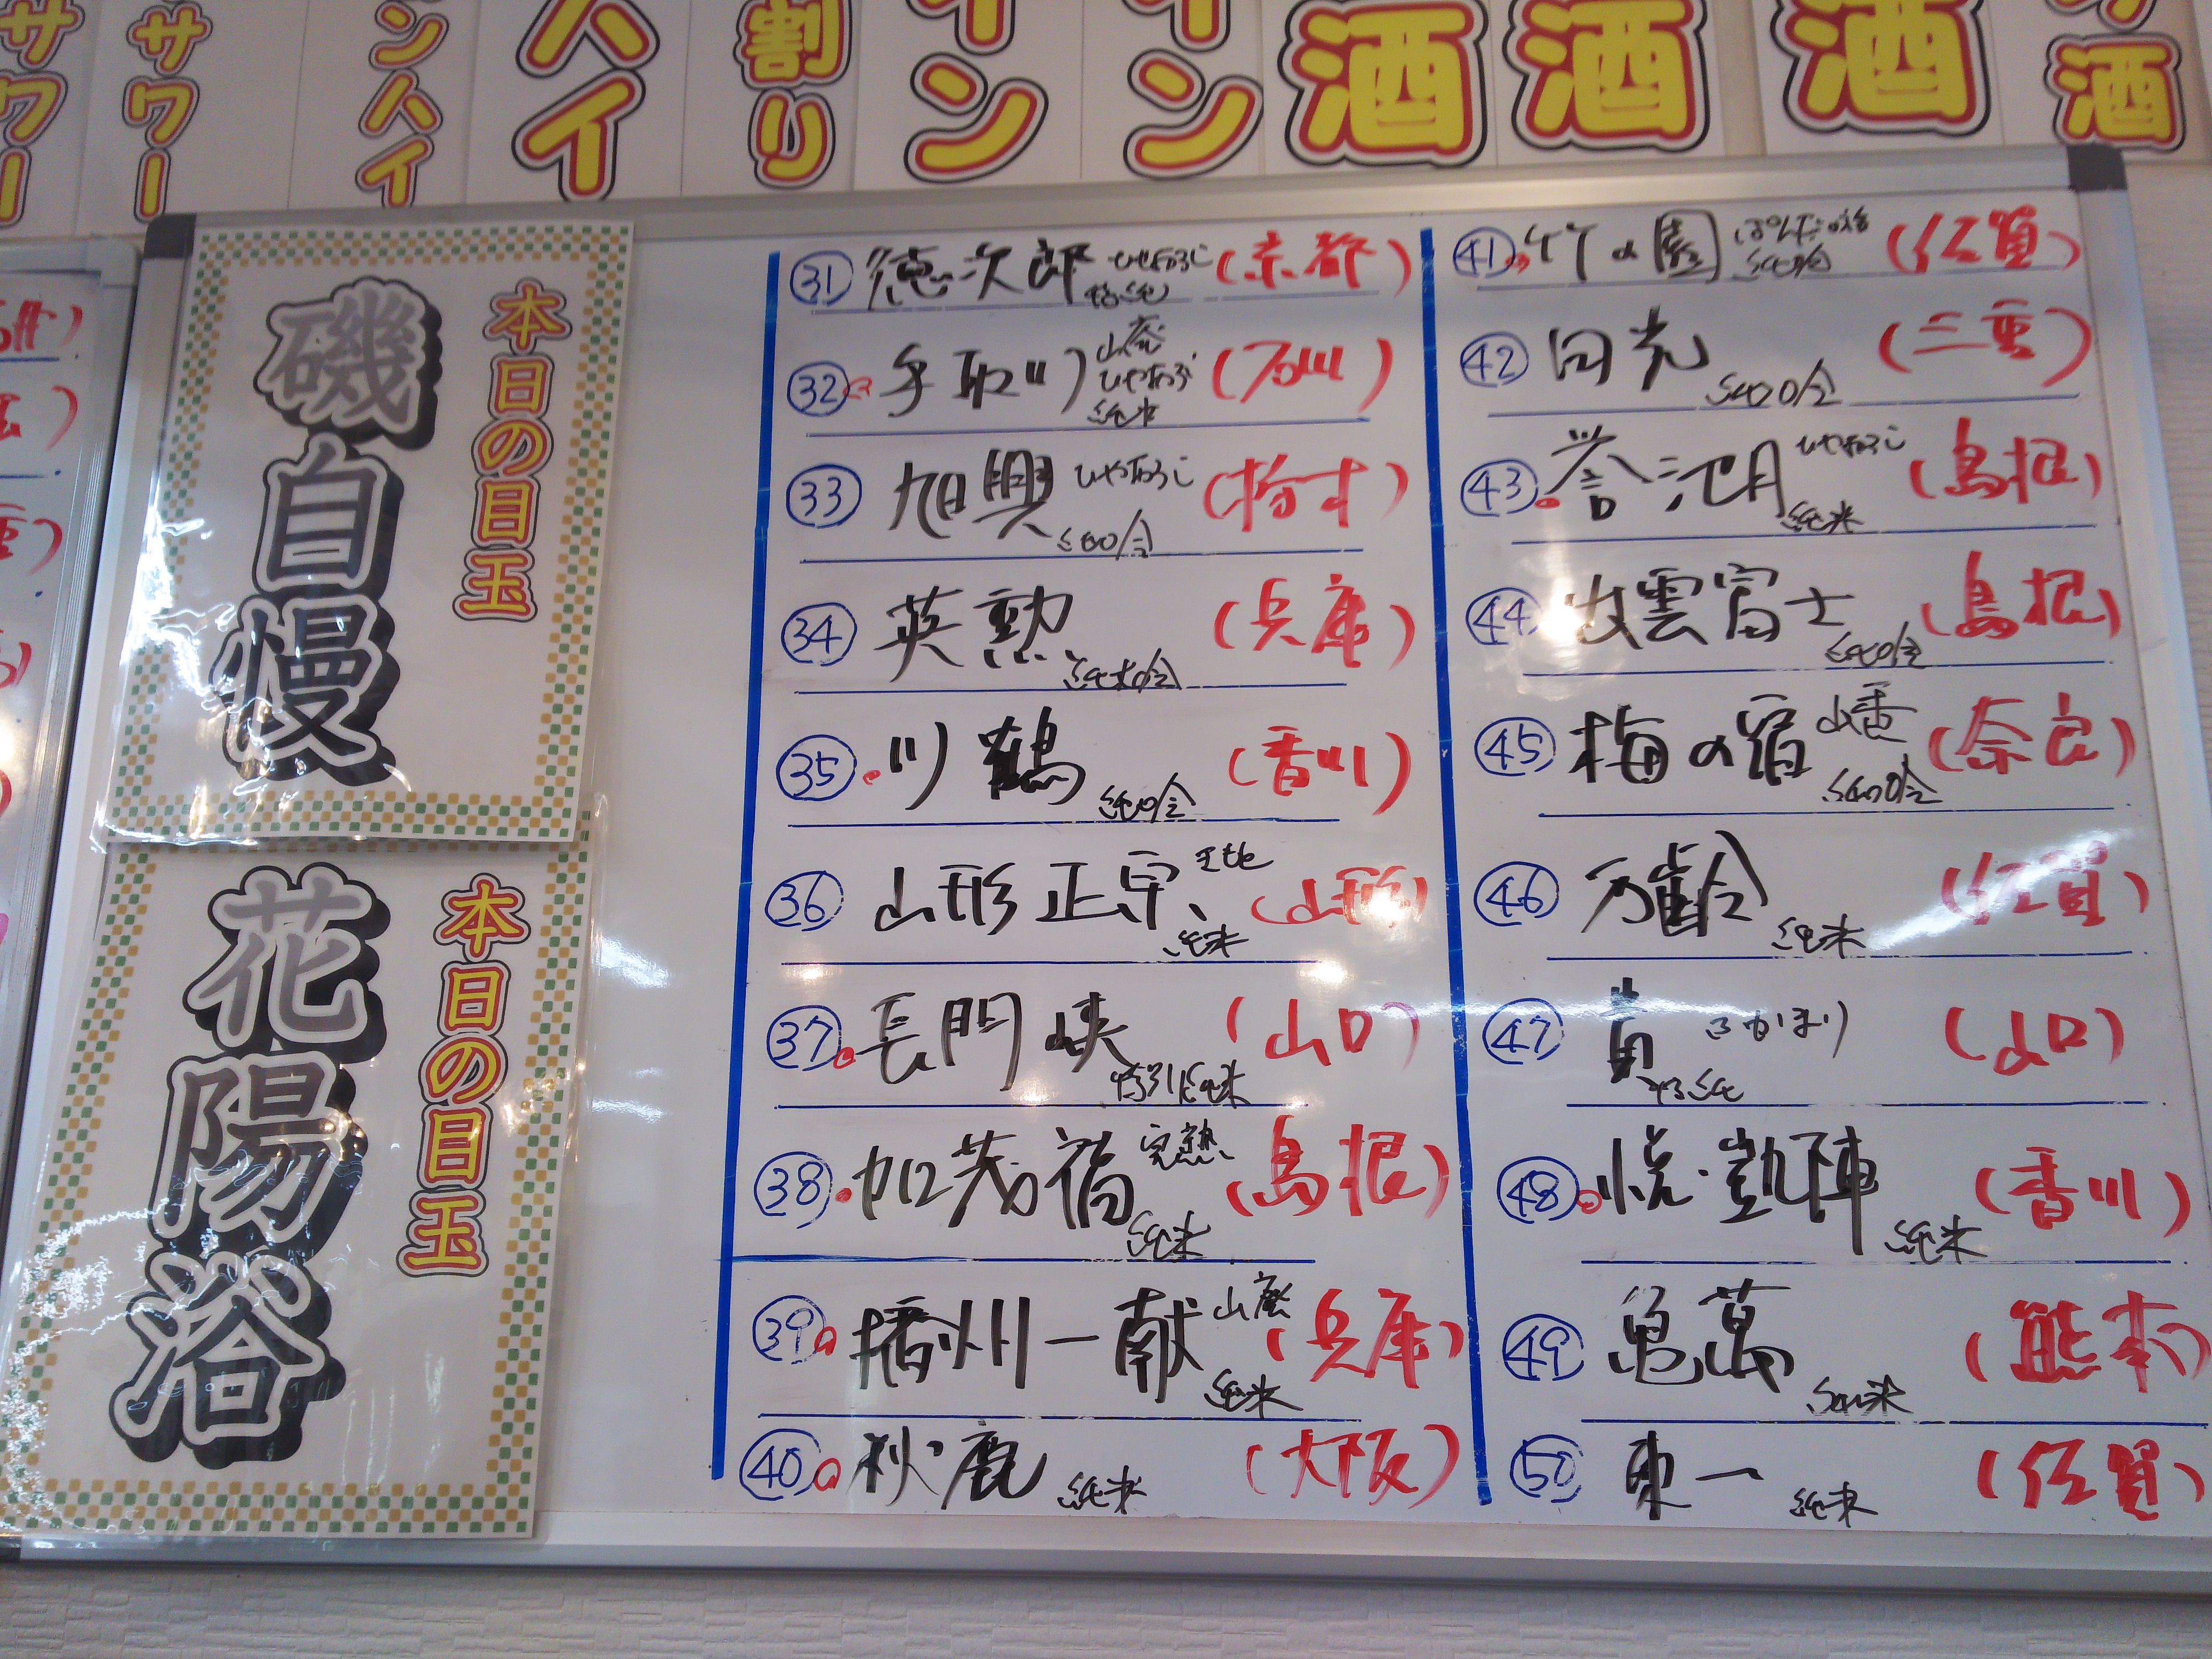 サワー
サワー
ンハイ
ハイ
割り
イン
イン
酒
酒
酒
酒
本日の目玉
磯自慢
本日の目玉
花陽浴
㉛ 徳次郎 ひやおろし 特純 (京都)
㉜ 手取川 山廃 ひやおろし 純米 (石川)
㉝ 旭興 ひやおろし 純吟 (栃木)
㉞ 英勲 純米吟 (兵庫)
㉟ 川鶴 純吟 (香川)
㊱ 山形正宗 純米 (山形)
㊲ 長門峡 特別純米 (山口)
㊳ 加茂福 完熟 純米 (島根)
㊴ 播州一献 山廃 純米 (兵庫)
㊵ 秋鹿 純米 (大阪)
㊶ 竹の園 純吟 (佐賀)
㊷ 田光 純吟 (三重)
㊸ 誉池月 ひやおろし 純米 (島根)
㊹ 出雲富士 純吟 (島根)
㊺ 梅の宿 山香 純吟 (奈良)
㊻ 万齢 純米 (佐賀)
㊼ 貴 ふかまり 特純 (山口)
㊽ 悦凱陣 純米 (香川)
㊾ 亀萬 純米 (熊本)
㊿ 東一 純米 (佐賀)